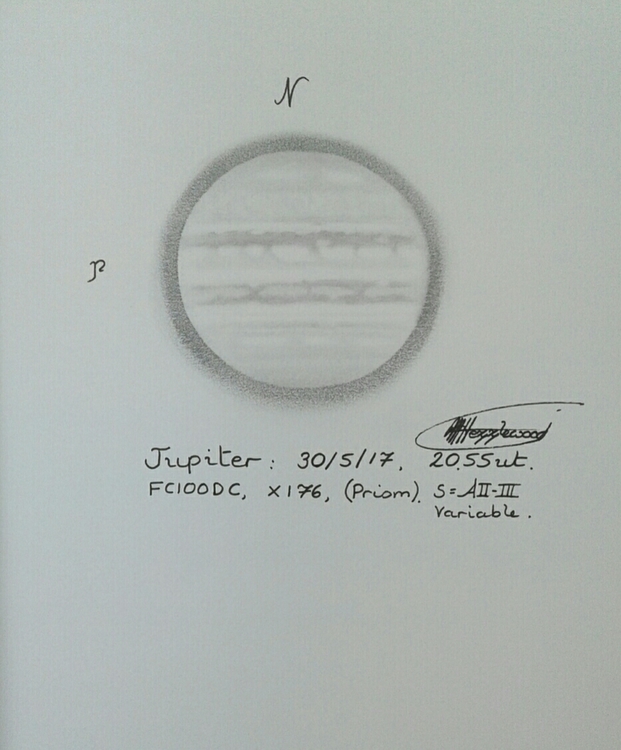 N
p
Hezzlewood
Jupiter: 30/5/17. 20.55ut.
FC100DC, x176, (Prism). S=AII-III
Variable.